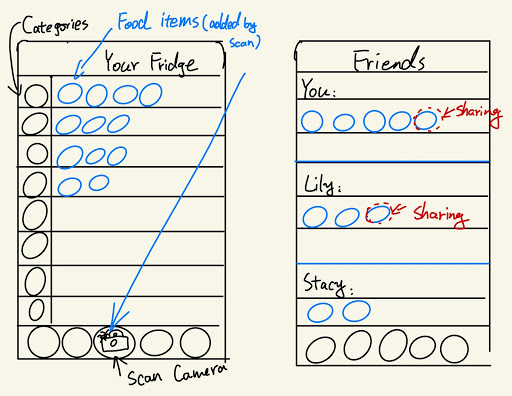 Categories
Food items (added by
scan)
Your Fridge
Scan Camera
Friends
You:
Sharing
Lily:
Sharing
Stacy: